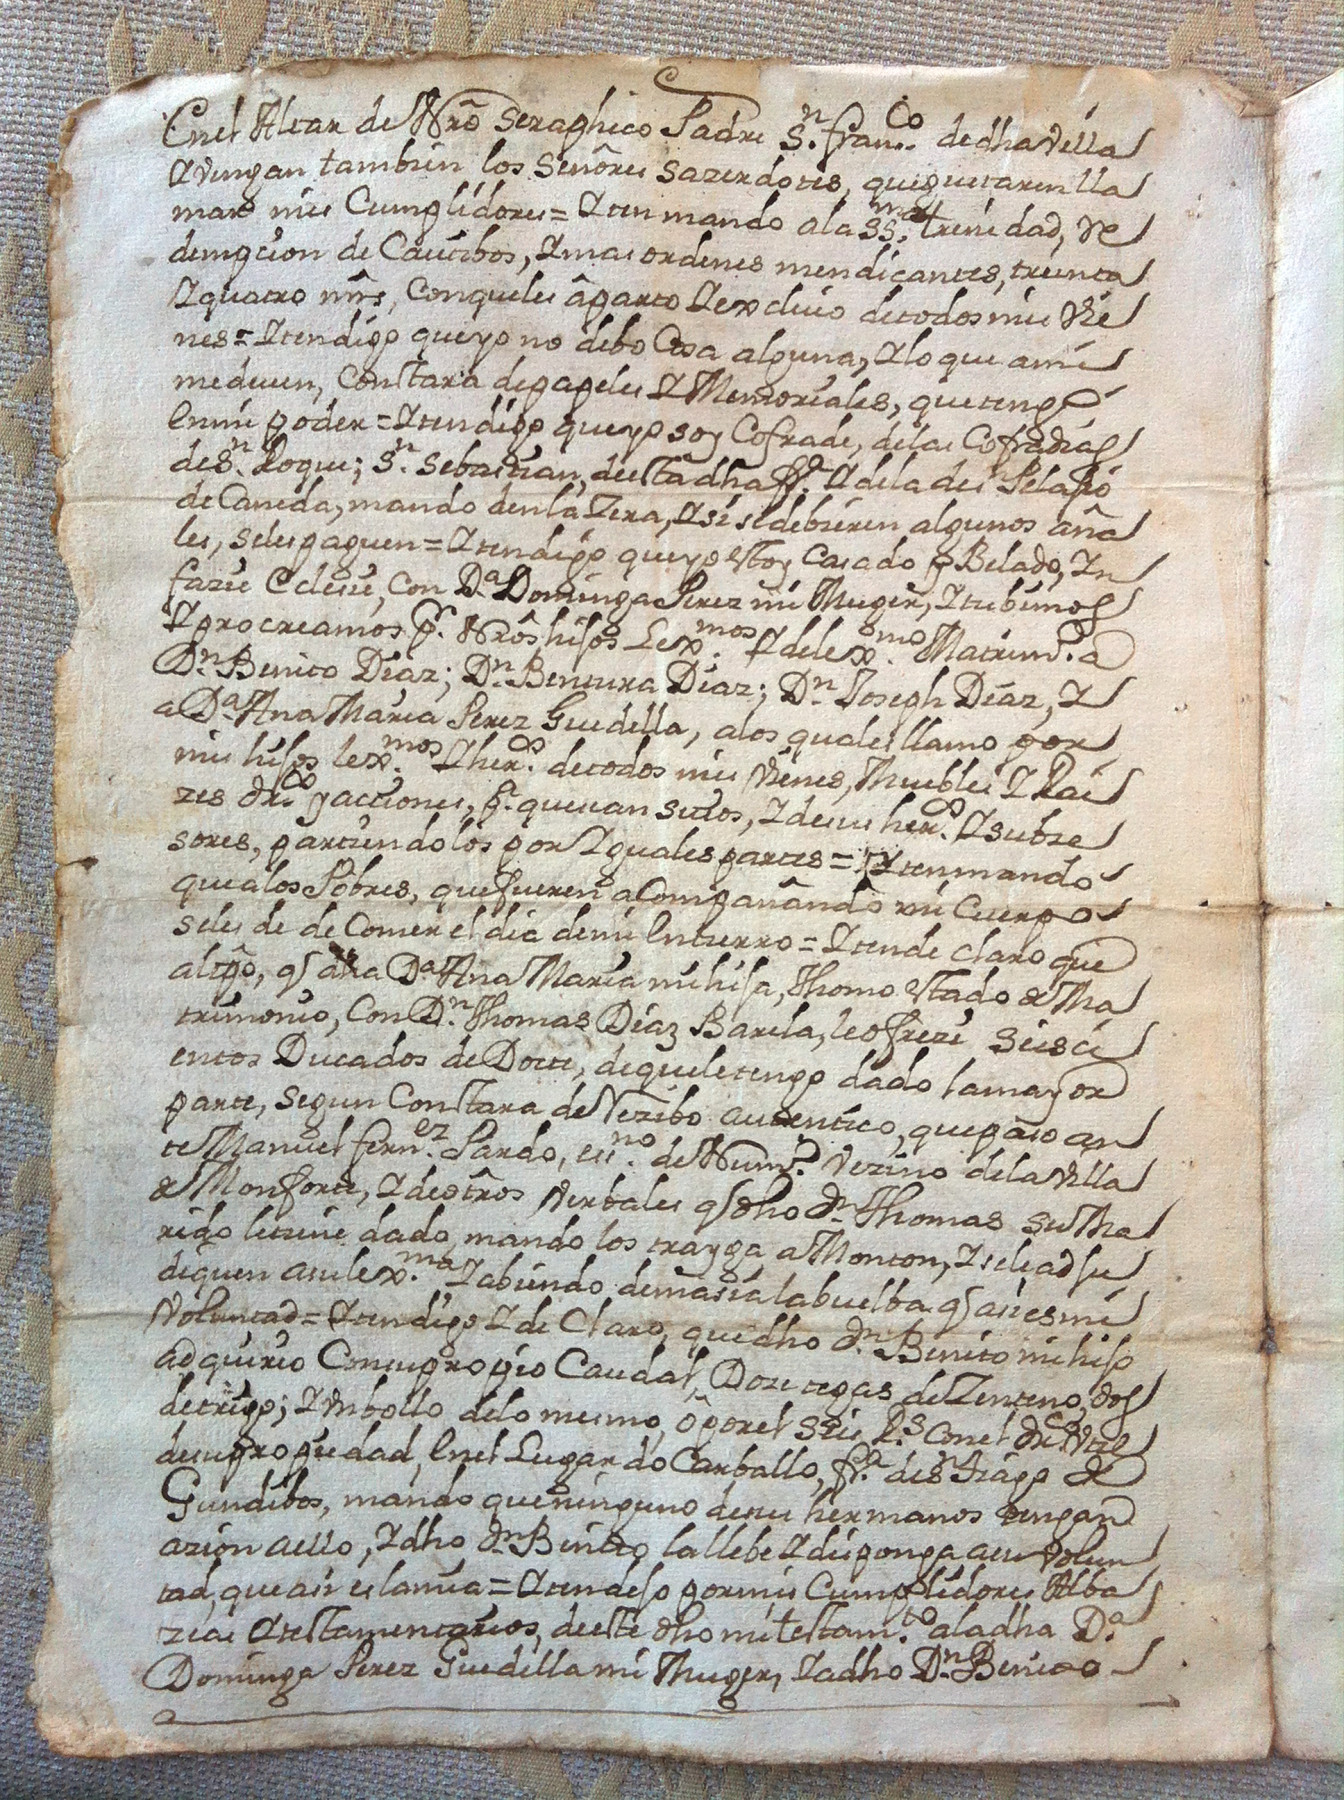 Enel Altar de Nrõ Seraphico Padre Sn. franco. dedha villa
Y vengan tambien los Señores Sazerdotes, quequitaren lla
mar mis Cumplidores = Yten mando ala SSma. trenidad, Re
dempcion de Cautibos, Ymas ordenes mendicantes, treinta
Y quatro mrs, Conqueles âparto Y excluio detodos mis Vie
nes = Yten digo queyo no debo Cosa alguna, Y lo que ami
me deuen, Constara depapeles Y Memoreales, que tengo
En mi poder = Yten digo queyo soy Cofrade, delas Cofradias
de Sn. Roque; Sn. Sebastian, desta dha fa. Y dela de Pelagio
de Caneda, mando den la Zera, Y si se debieren algunos aña
les, selespaguen = Yten digo queyo estoy Casado y Belado, In
fazie Eclesie, Con Da. Dominga Perez mi Muger, Y tubimos
Y procreamos pr. Nrôs hijos Lexmos. Y delexmo. Matrimo. a
Dn. Benito Diaz; Dn. Bentura Diaz; Dn. Joseph Diaz, Y
a Da. Ana Maria Perez Guedella, alos quales llamo por
mis hijos lexmos. Y heros. detodos mis vienes, Muebles Y Rai
zes dros. y acciones, pa. quesean suios, Y desus heros. Y subze
sores, partiendolos por Yguales partes = Yten mando
quealos Pobres, quefueren acompañando mi Cuerpo
seles de de Comer el dia demi Entierro = Yten de claro que
altpô, q dha Da. Ana Maria mi hija, thomo estado de Ma
trimonio, Con Dn. Thomas Diaz Barela, le ofrezi seisci
entos Ducados de Dote, dequeletengo dado lamayor
parte, segun Constara de Rezibo autentico, quepaso an
te Manuel fernez. Pardo, esno. de Numo. vezino dela villa
de Monforte, Y deotrôs verbales q dho dn. Thomas su Ma
rido letiene dado, mando los trayga a Monton, Y seleadju
diquen asulexma. Y abiendo demasia labuelba q asi esmi
Voluntad = Yten digo Y de Claro, quedho dn. Benito mi hijo
adquirio Consupropio Caudal, Doze tegas de Zenteno, dos
detrigo; Y vn bollo delo mesmo, ô porel seis Rs. Conel dro. Vtil
desupropiedad, Enel Lugar do Carballo, fa. de Sn. tiago de
Gundibos, mando queninguno desus hermanos tengan
azion aello, Y dho dn. Benito lallebe Y disponga asu Volun
tad, que asi es lamia = Yten dejo pormis Cumplidores Alba
zeas Y testamentarios, deeste dho mi testamto. aladha Da.
Dominga Perez Guedella mi Muger, Y adho Dn. Benito